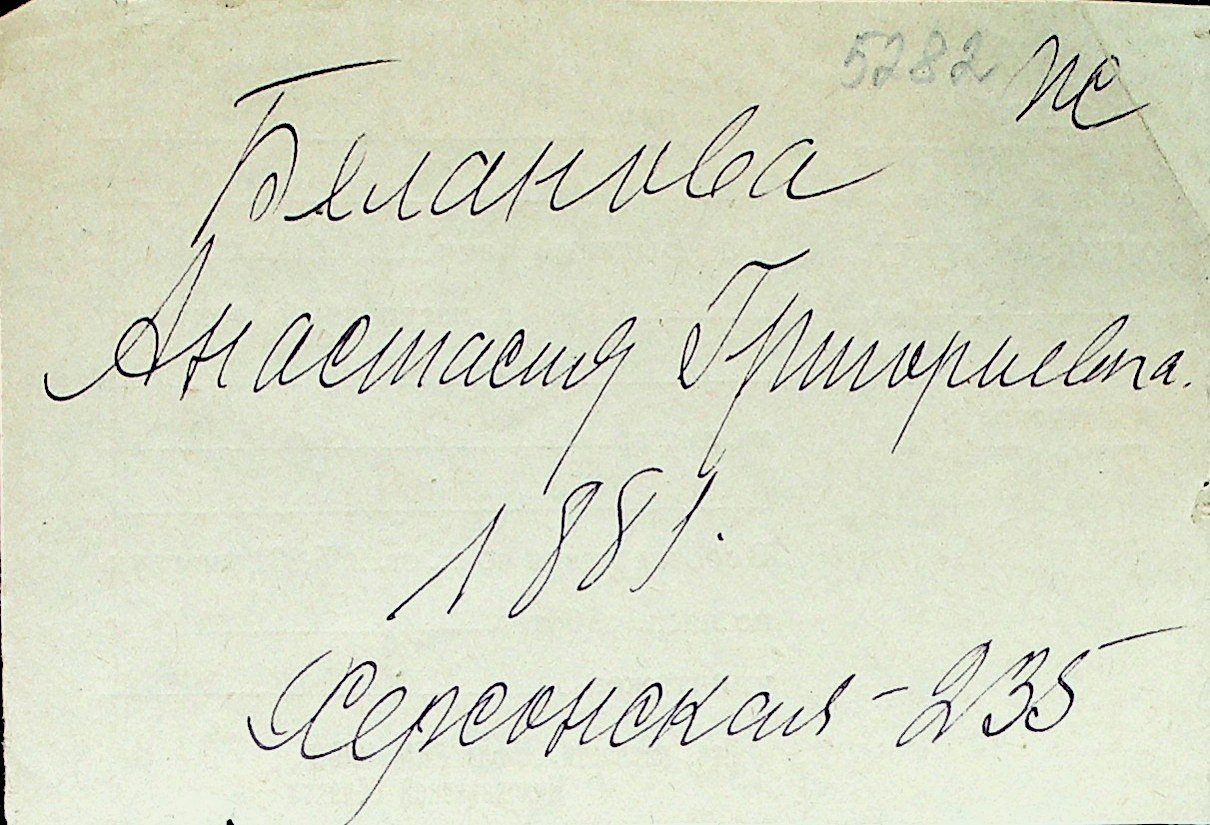 5282 пс
Беланова
Анастасия Григориевна.
1881.
Херсонская - 235